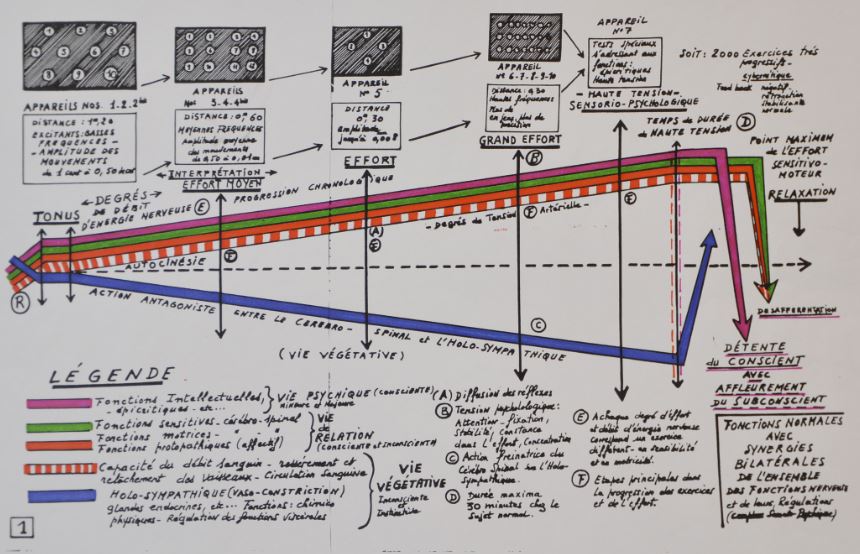 1 2
4 5 6 7
8 9 10
APPAREILS NOS. 1.2.2bis
DISTANCE: 1m,20
EXCITANTS: BASSES
FREQUENCES -
- AMPLITUDE DES
MOUVEMENTS
de 1 cent à 0,50 cent
APPAREILS
Nos 3.4.4bis
DISTANCE: 0m,60
MOYENNES FREQUENCES
Amplitude moyenne
des mouvements
de 0,50 à 0,01 cm
APPAREIL
N° 5
DISTANCE
0m,30
amplitude
jusqu'à 0,008
APPAREIL
N° 6-7-8-9-10
Distance: 0,30
Hautes fréquences
Plus de
précision
APPAREIL
N°7
Tests spéciaux
s'adressant aux
fonctions:
épicritiques
Haute tension
SOIT: 2000 Exercices très
progressifs
cybernétique
- HAUTE TENSION -
SENSORIO-PSYCHOLOGIQUE
TEMPS DE DURÉE
DE HAUTE TENSION (D)
POINT MAXIMUM
de l'EFFORT
SENSITIVO-
MOTEUR
RELAXATION
INTERPRÉTATION
EFFORT MOYEN
EFFORT
GRAND EFFORT
(B)
TONUS
DEGRÉS
DE DÉBIT
D'ÉNERGIE NERVEUSE (E)
PROGRESSION CHRONOLOGIQUE
(A)
(E)
- Degrés de Tension (F) Artérielle -
(F)
(E)
AUTOCINÉSIE
(R)
ACTION ANTAGONISTE ENTRE LE CEREBRO-SPINAL et l'HOLO-SYMPATHIQUE
(C)
(VIE VÉGÉTATIVE)
DESAFFERENTATION
DÉTENTE
du CONSCIENT
AVEC
AFFLEUREMENT
DU SUBCONSCIENT
LÉGENDE
Fonctions Intellectuelles,
- épicritiques - etc...
VIE PSYCHIQUE (CONSCIENTE)
MINEURE et Majeure
Fonctions sensitives - cérébro-spinal
Fonctions motrices - "
Fonctions protopathiques (affectif)
VIE
de
RELATION
(CONSCIENTE et INCONSCIENTE)
Capacité du débit sanguin - resserrement et
relâchement des vaisseaux - Circulation sanguine
HOLO-SYMPATHIQUE (VASO-CONSTRICTION)
glandes endocrines, etc... Fonctions: chimico
physiques - Régulation des fonctions viscérales
VIE
VÉGÉTATIVE
Inconsciente
et
Instinctive
(A) Diffusion des réflexes
(B) Tension psychologique:
Attention - fixation,
Stabilité, Constance
dans l'effort, Concentration
(C) Action freinatrice du
Cérébro Spinal sur l'Holo-
Sympathique.
(D) Durée maxima
30 minutes chez le
Sujet normal.
(E) A chaque degré d'effort
et débit d'énergie nerveuse
correspond un exercice
différent - en sensibilité
et en motricité.
(F) Etapes principales dans
la progression des exercices
et de l'effort.
FONCTIONS NORMALES
AVEC
SYNERGIES
BILATÉRALES
DE L'ENSEMBLE
DES FONCTIONS NERVEUSES
et de leurs Régulations
1